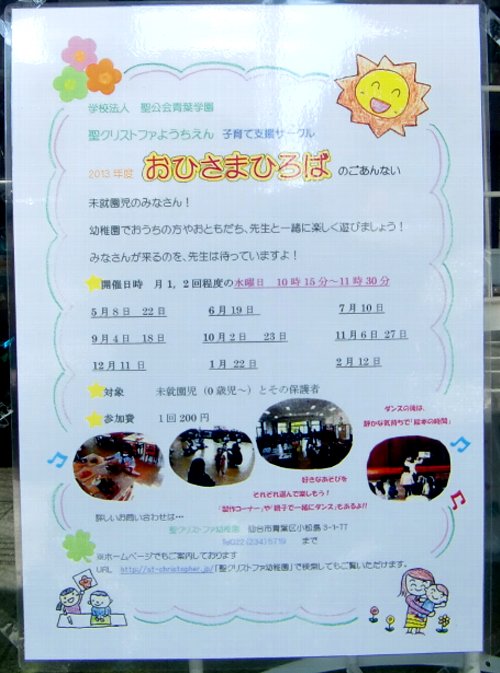 学校法人 聖公会青葉学園
聖クリストファようちえん 子育て支援サークル
2013年度 おひさまひろば のごあんない
未就園児のみなさん！
幼稚園でおうちの方やおともだち、先生と一緒に楽しく遊びましょう！
みなさんが来るのを、先生は待っていますよ！
開催日時 月1，2回程度の水曜日 10時15分～11時30分
5月8日 22日 6月19日 7月10日
9月4日 18日 10月2日 23日 11月6日 27日
12月11日 1月22日 2月12日
対象 未就園児（0歳児～）とその保護者
参加費 1回200円
ダンスの後は、
静かな気持ちで「絵本の時間」
好きなあそびを
それぞれ選んで楽しもう！
「製作コーナー」や「親子で一緒にダンス」もあるよ!!
詳しいお問い合わせは…
聖クリストファ幼稚園 仙台市青葉区小松島3-1-77
Tel022(234)5719 まで
※ホームページでもご案内しております
URL http://st-christopher.jp/「聖クリストファ幼稚園」で検索してもご覧いただけます。